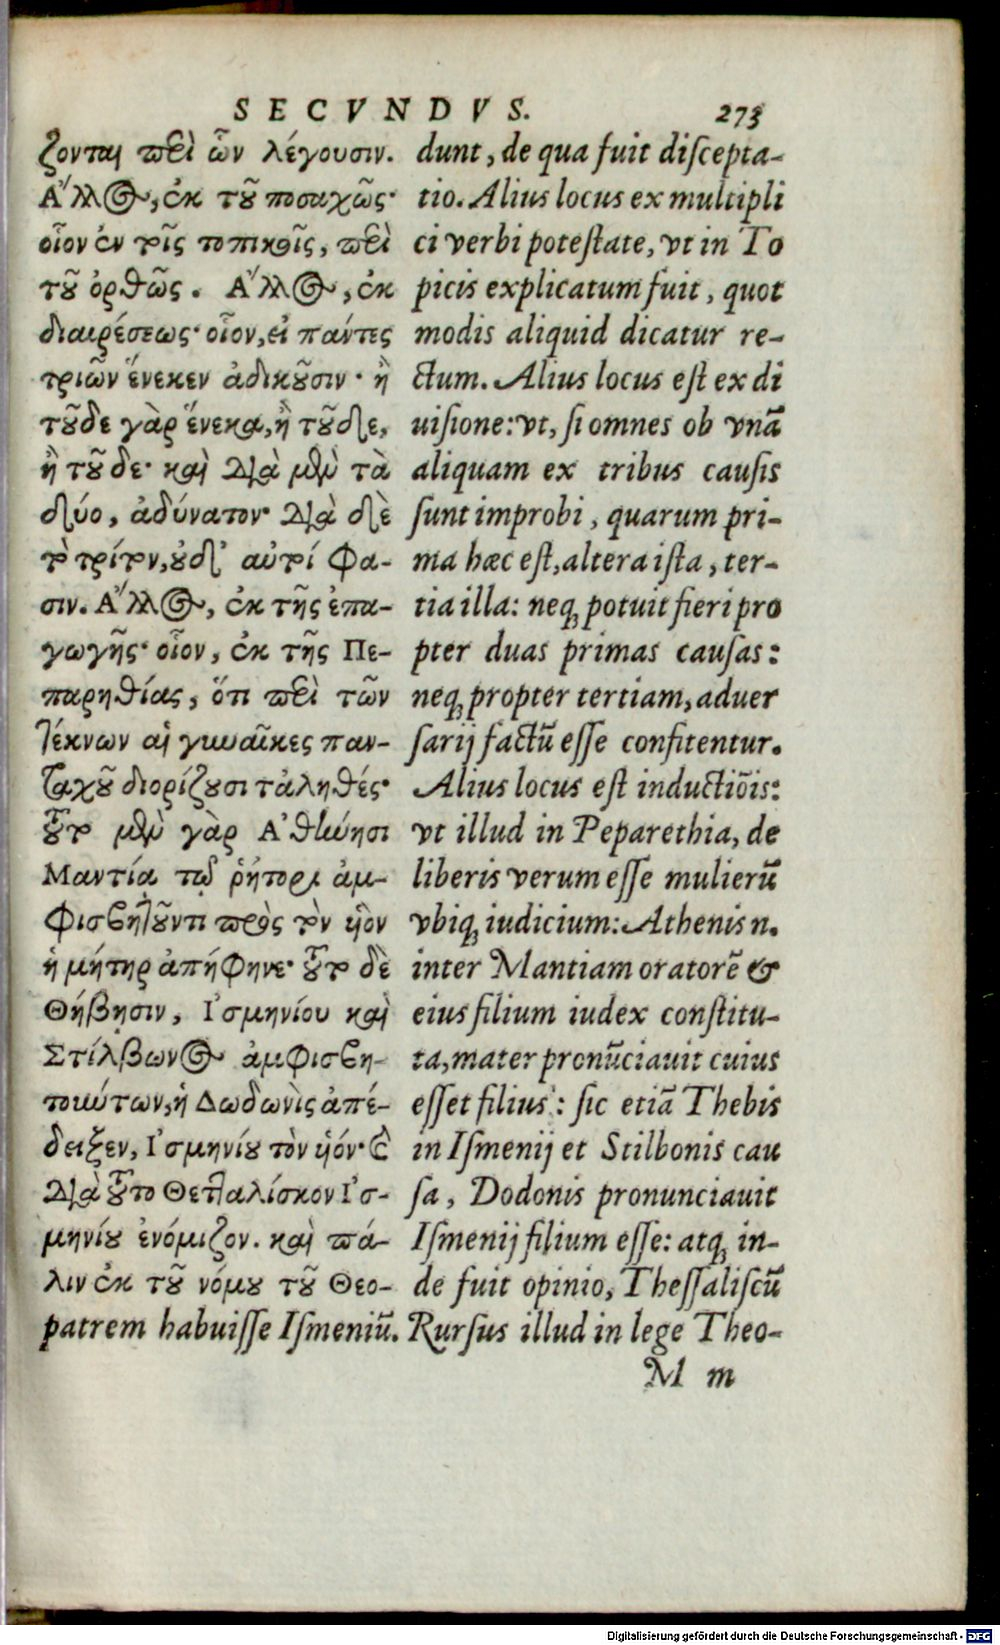 SECVNDVS. 273
ζονται περὶ ὧν λέγουσιν.
Ἄλλος, ἐκ τοῦ ποσαχῶς·
οἷον ἐν τοῖς τοπικοῖς, περὶ
τοῦ ὀρθῶς. Ἄλλος, ἐκ
διαιρέσεως· οἷον, εἰ πάντες
τριῶν ἕνεκεν ἀδικοῦσιν· ἢ
τοῦδε γὰρ ἕνεκα, ἢ τοῦδε,
ἢ τοῦδε· καὶ διὰ μὲν τὰ
δύο, ἀδύνατον· διὰ δὲ
τὸ τρίτον, οὐδ' αὐτοί φα-
σιν. Ἄλλος, ἐκ τῆς ἐπα-
γωγῆς· οἷον, ἐκ τῆς Πε-
παρηθίας, ὅτι περὶ τῶν
τέκνων αἱ γυναῖκες παν-
ταχοῦ διορίζουσι τἀληθές·
τοῦτο μὲν γὰρ Ἀθήνησι
Μαντίᾳ τῷ ῥήτορι ἀμ-
φισβητοῦντι πρὸς τὸν υἱὸν
ἡ μήτηρ ἀπήφηνε· τοῦτο δὲ
Θήβησιν, Ἰσμηνίου καὶ
Στίλβωνος ἀμφισβη-
τούτων, ἡ Δωδωνὶς ἀπέ-
δειξεν, Ἰσμηνίου τὸν υἱόν· καὶ
διὰ τοῦτο Θετταλίσκον Ἰσ-
μηνίου ἐνόμιζον. καὶ πά-
λιν ἐκ τοῦ νόμου τοῦ Θεο-
dunt, de qua fuit discepta-
tio. Alius locus ex multipli
ci verbi potestate, vt in To
picis explicatum fuit, quot
modis aliquid dicatur re-
ctum. Alius locus est ex di
uisione: vt, si omnes ob vnã
aliquam ex tribus causis
sunt improbi, quarum pri-
ma hæc est, altera ista, ter-
tia illa: neq; potuit fieri pro
pter duas primas causas:
neq; propter tertiam, aduer
sarij factũ esse confitentur.
Alius locus est inductiõis:
vt illud in Peparethia, de
liberis verum esse mulierũ
vbiq; iudicium: Athenis n.
inter Mantiam oratorẽ &
eius filium iudex constitu-
ta, mater pronũciauit cuius
esset filius: sic etiã Thebis
in Ismenij et Stilbonis cau
sa, Dodonis pronunciauit
Ismenij filium esse: atq; in-
de fuit opinio, Thessaliscũ
patrem habuisse Ismeniũ. Rursus illud in lege Theo-
M m
Digitalisierung gefördert durch die Deutsche Forschungsgemeinschaft - DFG